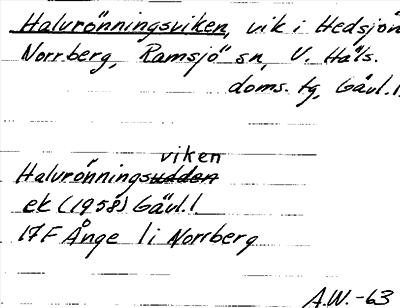 Halvrönningsviken, vik i Hedsjön
Norrberg, Ramsjö sn, V. Häls.
doms. tg, Gävl. l.
viken
Halvrönningsudden
ek (1958) Gävl. l
17F Ånge 1 i Norrberg
A.W.-63